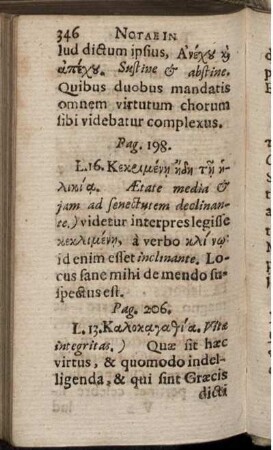 346 NOTAE IN
lud dictum ipsius, Ἀνέχου καὶ
ἀπέχου. Sustine & abstine.
Quibus duobus mandatis
omnem virtutum chorum
sibi videbatur complexus.
Pag. 198.
L.16. Κεκριμένη ἤδη τῇ ἡ-
λικίᾳ. Ætate media &
jam ad senectutem declinan-
te.) videtur interpres legisse
κεκλιμένη, à verbo κλίνω:
id enim esset inclinante. Lo-
cus sane mihi de mendo su-
spectus est.
Pag. 206.
L. 13. Καλοκαγαθία. Vitæ
integritas.) Quæ sit hæc
virtus, & quomodo indel-
ligenda, & qui sint Græcis
dicti